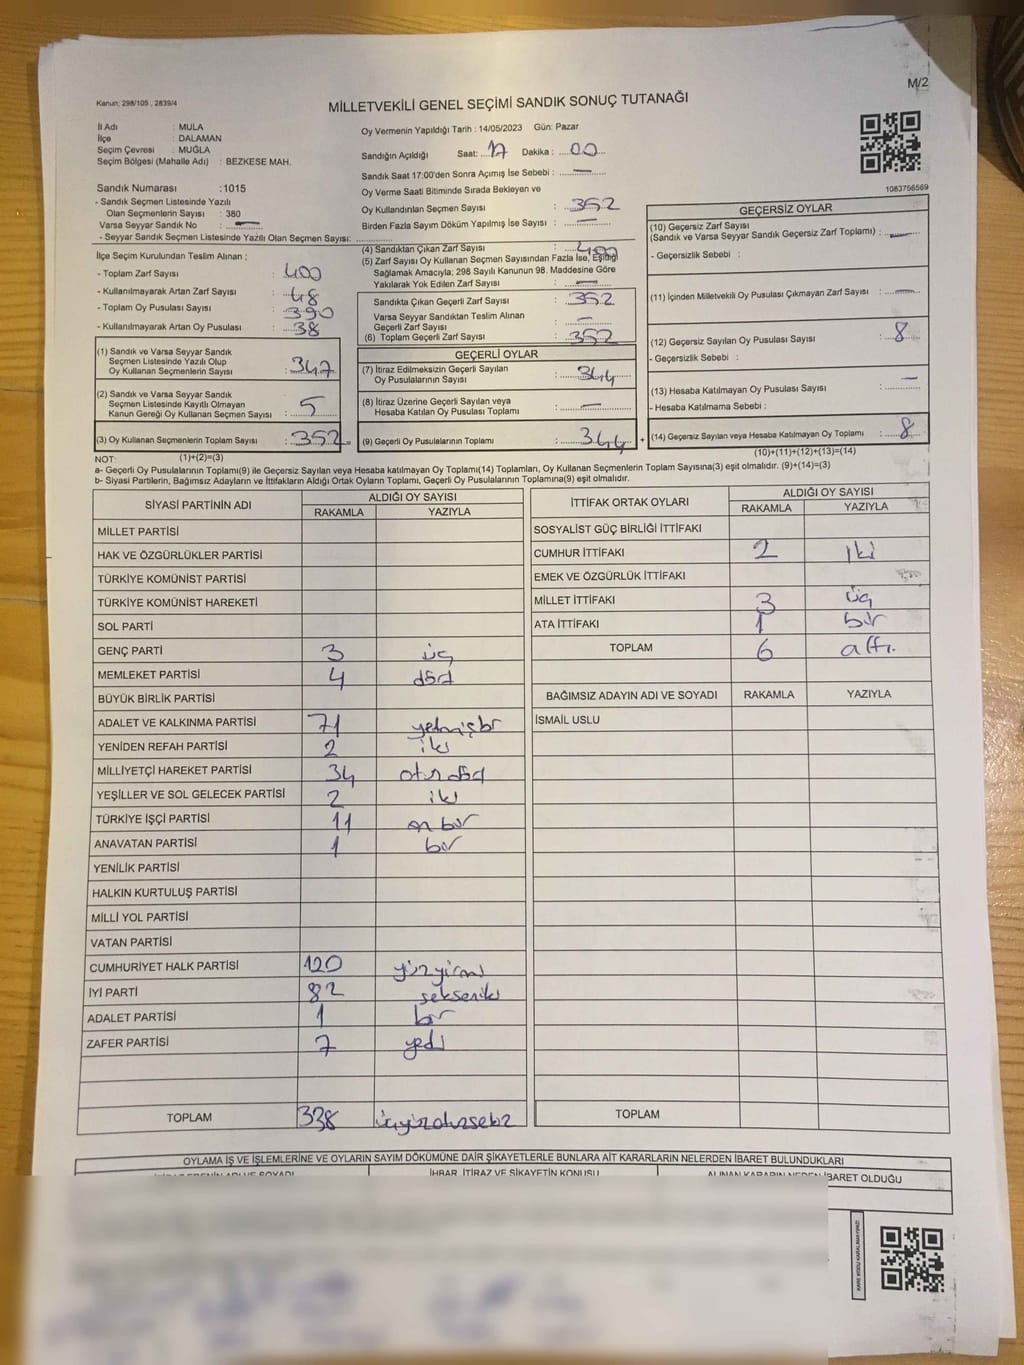 M/2
Kanun; 298/105 , 2839/4
MİLLETVEKİLİ GENEL SEÇİMİ SANDIK SONUÇ TUTANAĞI
İl Adı : MULA
İlçe : DALAMAN
Seçim Çevresi : MUĞLA
Seçim Bölgesi (Mahalle Adı) : BEZKESE MAH.
Sandık Numarası :1015
- Sandık Seçmen Listesinde Yazılı
Olan Seçmenlerin Sayısı : 380
Varsa Seyyar Sandık No : —
- Seyyar Sandık Seçmen Listesinde Yazılı Olan Seçmen Sayısı:
Oy Vermenin Yapıldığı Tarih : 14/05/2023 Gün: Pazar
Sandığın Açıldığı Saat: 17 Dakika : 00
Sandık Saat 17:00'den Sonra Açımış İse Sebebi : —
Oy Verme Saati Bitiminde Sırada Bekleyen ve
Oy Kullandırılan Seçmen Sayısı : 352
Birden Fazla Sayım Döküm Yapılmış İse Sayısı : —
1083756569
İlçe Seçim Kurulundan Teslim Alınan ;
- Toplam Zarf Sayısı : 400
- Kullanılmayarak Artan Zarf Sayısı : 48
- Toplam Oy Pusulası Sayısı : 390
- Kullanılmayarak Artan Oy Pusulası : 38
(1) Sandık ve Varsa Seyyar Sandık
Seçmen Listesinde Yazılı Olup
Oy Kullanan Seçmenlerin Sayısı : 347
(2) Sandık ve Varsa Seyyar Sandık
Seçmen Listesinde Kayıtlı Olmayan
Kanun Gereği Oy Kullanan Seçmen Sayısı : 5
(3) Oy Kullanan Seçmenlerin Toplam Sayısı : 352
(1)+(2)=(3)
(4) Sandıktan Çıkan Zarf Sayısı : 400
(5) Zarf Sayısı Oy Kullanan Seçmen Sayısından Fazla İse, Eşitliği
Sağlamak Amacıyla; 298 Sayılı Kanunun 98. Maddesine Göre
Yakılarak Yok Edilen Zarf Sayısı : —
Sandıkta Çıkan Geçerli Zarf Sayısı : 352
Varsa Seyyar Sandıktan Teslim Alınan
Geçerli Zarf Sayısı : —
(6) Toplam Geçerli Zarf Sayısı : 352
GEÇERLİ OYLAR
(7) İtiraz Edilmeksizin Geçerli Sayılan
Oy Pusulalarının Sayısı : 344
(8) İtiraz Üzerine Geçerli Sayılan veya
Hesaba Katılan Oy Pusulası Toplamı : —
(9) Geçerli Oy Pusulalarının Toplamı : 344 +
GEÇERSİZ OYLAR
(10) Geçersiz Zarf Sayısı
(Sandık ve Varsa Seyyar Sandık Geçersiz Zarf Toplamı) : —
- Geçersizlik Sebebi :
(11) İçinden Milletvekili Oy Pusulası Çıkmayan Zarf Sayısı : —
(12) Geçersiz Sayılan Oy Pusulası Sayısı : 8
- Geçersizlik Sebebi :
(13) Hesaba Katılmayan Oy Pusulası Sayısı : —
- Hesaba Katılmama Sebebi :
(14) Geçersiz Sayılan veya Hesaba Katılmayan Oy Toplamı : 8
(10)+(11)+(12)+(13)=(14)
NOT:
a- Geçerli Oy Pusulalarının Toplamı(9) ile Geçersiz Sayılan veya Hesaba katılmayan Oy Toplamı(14) Toplamları, Oy Kullanan Seçmenlerin Toplam Sayısına(3) eşit olmalıdır. (9)+(14)=(3)
b- Siyasi Partilerin, Bağımsız Adayların ve İttifakların Aldığı Ortak Oyların Toplamı, Geçerli Oy Pusulalarının Toplamına(9) eşit olmalıdır.
SİYASİ PARTİNİN ADI ALDIĞI OY SAYISI
RAKAMLA YAZIYLA
MİLLET PARTİSİ
HAK VE ÖZGÜRLÜKLER PARTİSİ
TÜRKİYE KOMÜNİST PARTİSİ
TÜRKİYE KOMÜNİST HAREKETİ
SOL PARTİ
GENÇ PARTİ 3 üç
MEMLEKET PARTİSİ 4 dört
BÜYÜK BİRLİK PARTİSİ
ADALET VE KALKINMA PARTİSİ 71 yetmişbir
YENİDEN REFAH PARTİSİ 2 iki
MİLLİYETÇİ HAREKET PARTİSİ 34 otuzdört
YEŞİLLER VE SOL GELECEK PARTİSİ 2 iki
TÜRKİYE İŞÇİ PARTİSİ 11 on bir
ANAVATAN PARTİSİ 1 bir
YENİLİK PARTİSİ
HALKIN KURTULUŞ PARTİSİ
MİLLİ YOL PARTİSİ
VATAN PARTİSİ
CUMHURİYET HALK PARTİSİ 120 yüzyirmi
İYİ PARTİ 82 sekseniki
ADALET PARTİSİ 1 bir
ZAFER PARTİSİ 7 yedi
TOPLAM 338 üçyüzotuzsekiz
İTTİFAK ORTAK OYLARI ALDIĞI OY SAYISI
RAKAMLA YAZIYLA
SOSYALİST GÜÇ BİRLİĞİ İTTİFAKI
CUMHUR İTTİFAKI 2 iki
EMEK VE ÖZGÜRLÜK İTTİFAKI
MİLLET İTTİFAKI 3 üç
ATA İTTİFAKI 1 bir
TOPLAM 6 altı
BAĞIMSIZ ADAYIN ADI VE SOYADI RAKAMLA YAZIYLA
İSMAİL USLU
TOPLAM
OYLAMA İŞ VE İŞLEMLERİNE VE OYLARIN SAYIM DÖKÜMÜNE DAİR ŞİKAYETLERLE BUNLARA AİT KARARLARIN NELERDEN İBARET BULUNDUKLARI
İHBAR, İTİRAZ VE ŞİKAYETİN KONUSU ALINAN KARARIN NEDEN İBARET OLDUĞU